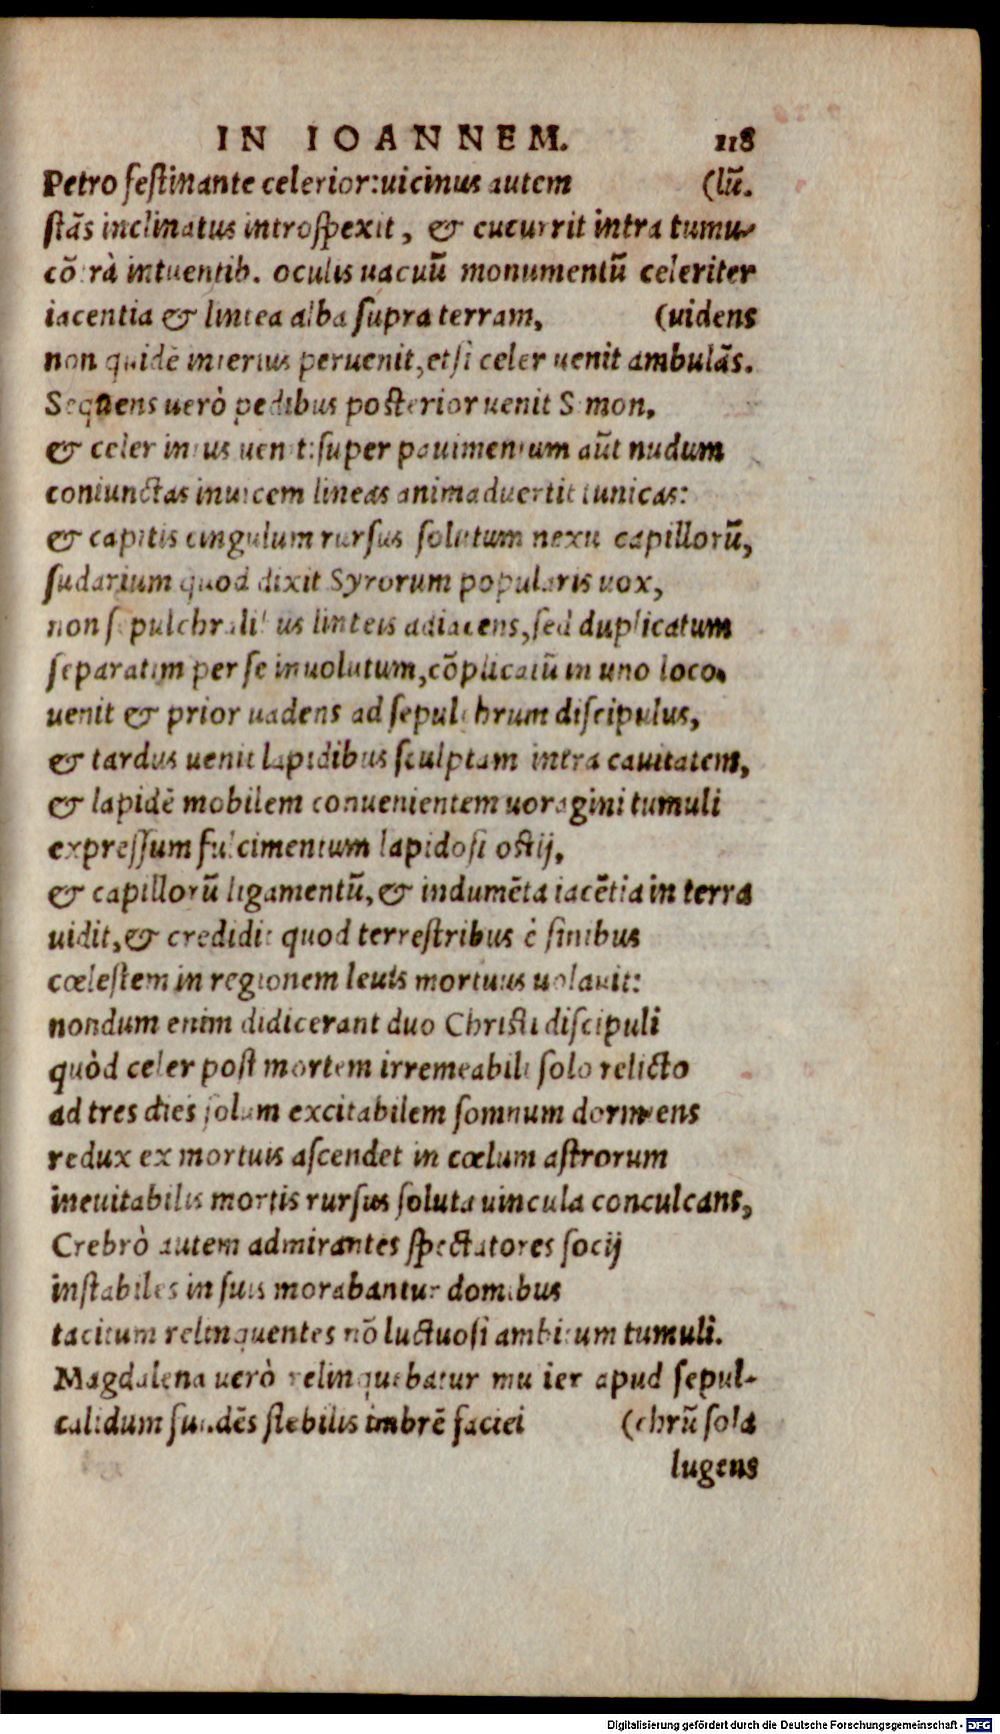 IN IOANNEM. 118
Petro festinante celerior: uicinus autem (lū.
stās inclinatus introspexit, & cucurrit intra tumu-
cōtrà intuentib. oculis uacuū monumentū celeriter
iacentia & lintea alba supra terram, (uidens
non quidē interius peruenit, etsi celer uenit ambulās.
Sequens uerò pedibus posterior uenit Simon,
& celer intus uenit: super pauimentum aūt nudum
coniunctas inuicem lineas animaduertit tunicas:
& capitis cingulum rursus solutum nexu capillorū,
sudarium quod dixit Syrorum popularis uox,
non sepulchralibus linteis adiacens, sed duplicatum
separatim per se inuolutum, cōplicatū in uno loco.
uenit & prior uadens ad sepulchrum discipulus,
& tardus uenit lapidibus sculptam intra cauitatem,
& lapidē mobilem conuenientem uoragini tumuli
expressum fulcimentum lapidosi ostij,
& capillorū ligamentū, & indumēta iacētia in terra
uidit, & credidit quod terrestribus è sinibus
cœlestem in regionem leuis mortuus uolauit:
nondum enim didicerant duo Christi discipuli
quòd celer post mortem irremeabili solo relicto
ad tres dies solum excitabilem somnum dormiens
redux ex mortuis ascendet in cœlum astrorum
ineuitabilis mortis rursus soluta uincula conculcans,
Crebrò autem admirantes spectatores socij
instabiles in suis morabantur domibus
tacitum relinquentes nō luctuosi ambitum tumuli.
Magdalena uerò relinquebatur mulier apud sepul-
calidum fundēs flebilis imbrē faciei (chrū sola
lugens
Digitalisierung gefördert durch die Deutsche Forschungsgemeinschaft - DFG